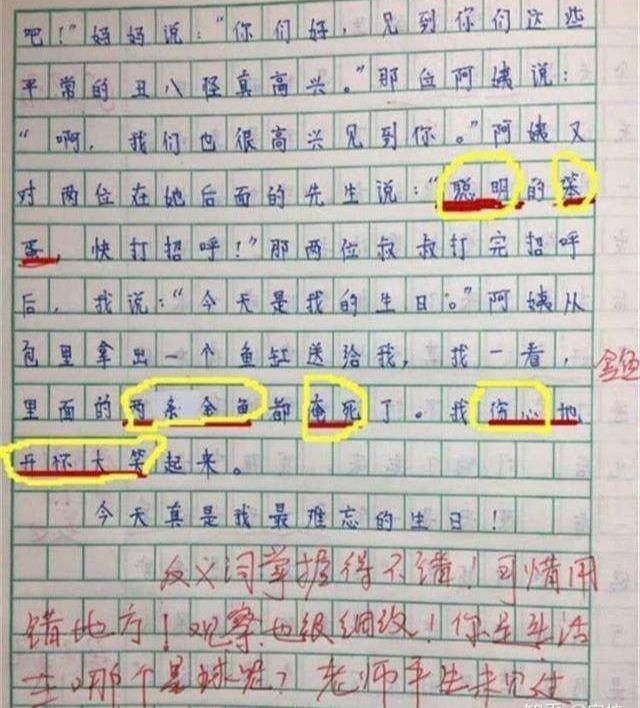 吧！"妈妈说："你们好，见到你们这些
平常的丑八怪真高兴。"那位阿姨说：
"啊，我们也很高兴见到你。"阿姨又
对两位在她后面的先生说："聪明的笨
蛋，快打招呼！"那两位叔叔打完招呼
后，我说："今天是我的生日。"阿姨从
包里拿出一个鱼缸送给我，我一看，
金鱼
里面的两条金鱼都淹死了。我伤心地
开怀大笑起来。
今天真是我最难忘的生日！
反义词掌握得不错！可惜用
错地方！观察也很细致！你是生活
在哪个星球呢？老师平生未见过
知乎